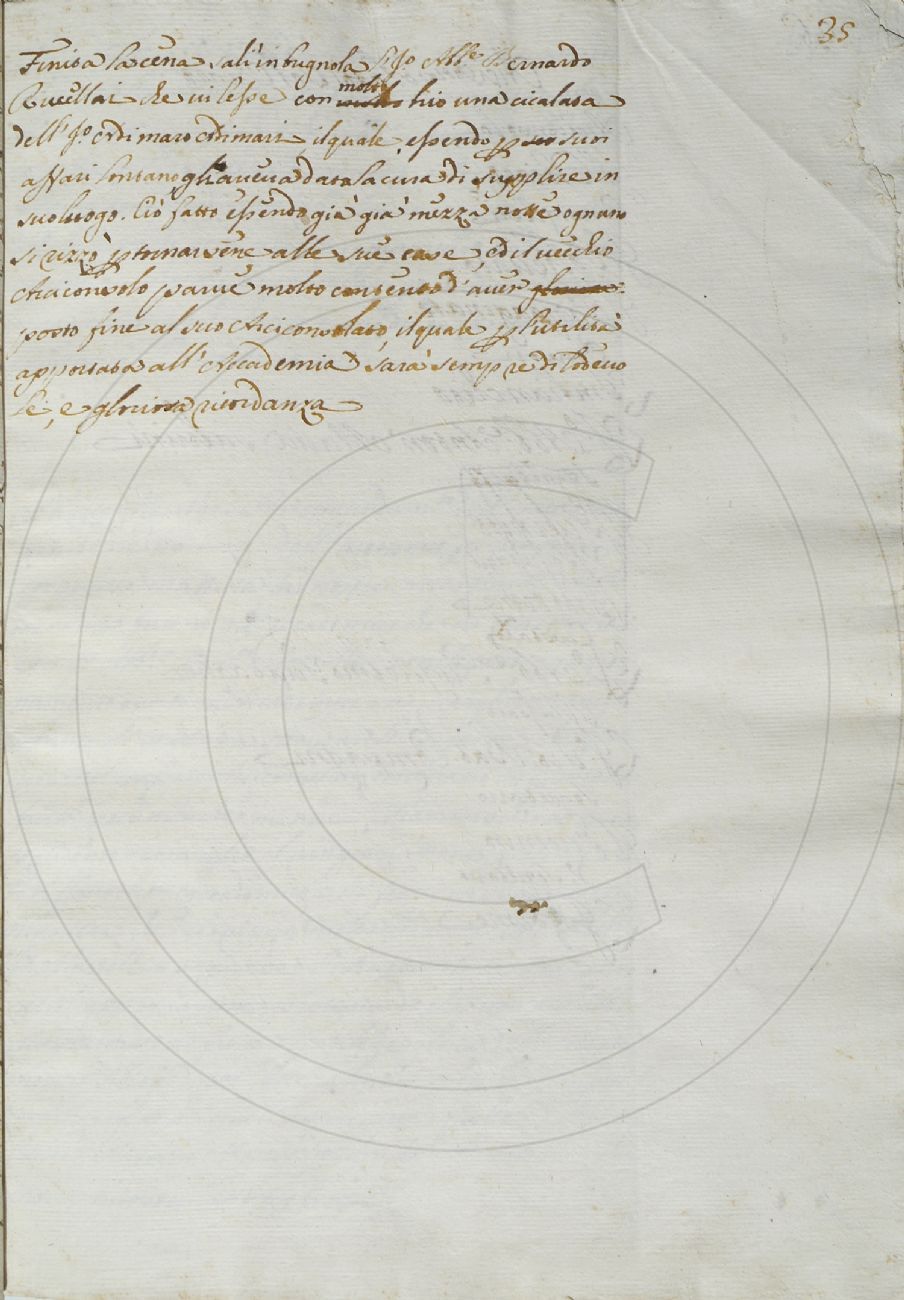 35
Finita la cena salì in bugnola l'Ill.mo Abb.e Bernardo
Rucellai che vi lesse con molto brio una cicalata
dell' Ill.mo Ordimaro Ordimari, il quale, essendo p suoi
affari lontano gli aveva data la cura di supplire in
suo luogo. Ciò fatto essendo già già mezza notte ognuno
si rizzò p tornarsene alle sue case, ed il vecchio
Arciconsolo parve molto contento d'aver
posto fine al suo Arciconsolato, il quale p l'utilità
apportata all' Accademia sarà sempre di lodevo
le, e gloriosa ricordanza